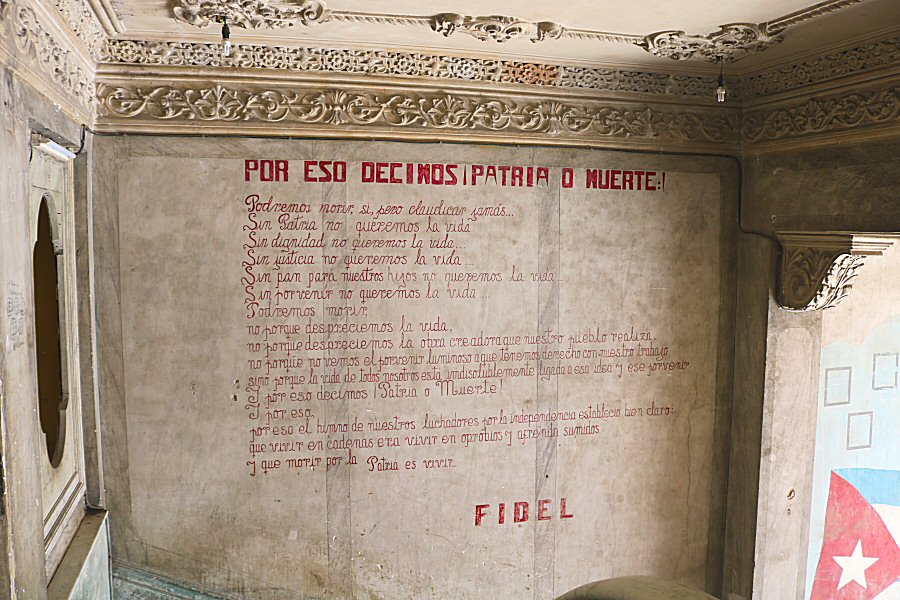 POR ESO DECIMOS ¡PATRIA O MUERTE!
Podremos morir, si, pero claudicar jamás...
Sin Patria no queremos la vida
Sin dignidad no queremos la vida...
Sin justicia no queremos la vida...
Sin pan para nuestros hijos no queremos la vida...
Sin porvenir no queremos la vida...
Podremos morir,
no porque despreciemos la vida,
no porque despreciemos la obra creadora que nuestro pueblo realiza,
no porque no vemos el porvenir luminoso a que tenemos derecho con nuestro trabajo
sino porque la vida de todos nosotros está indisolublemente ligada a esa idea y ese porvenir
Y por eso decimos ¡Patria o Muerte!
Y por eso,
por eso el himno de nuestros luchadores por la independencia establecia bien claro:
que vivir en cadenas era vivir en oprobios y afrenta sumidos
y que morir por la Patria es vivir...
FIDEL